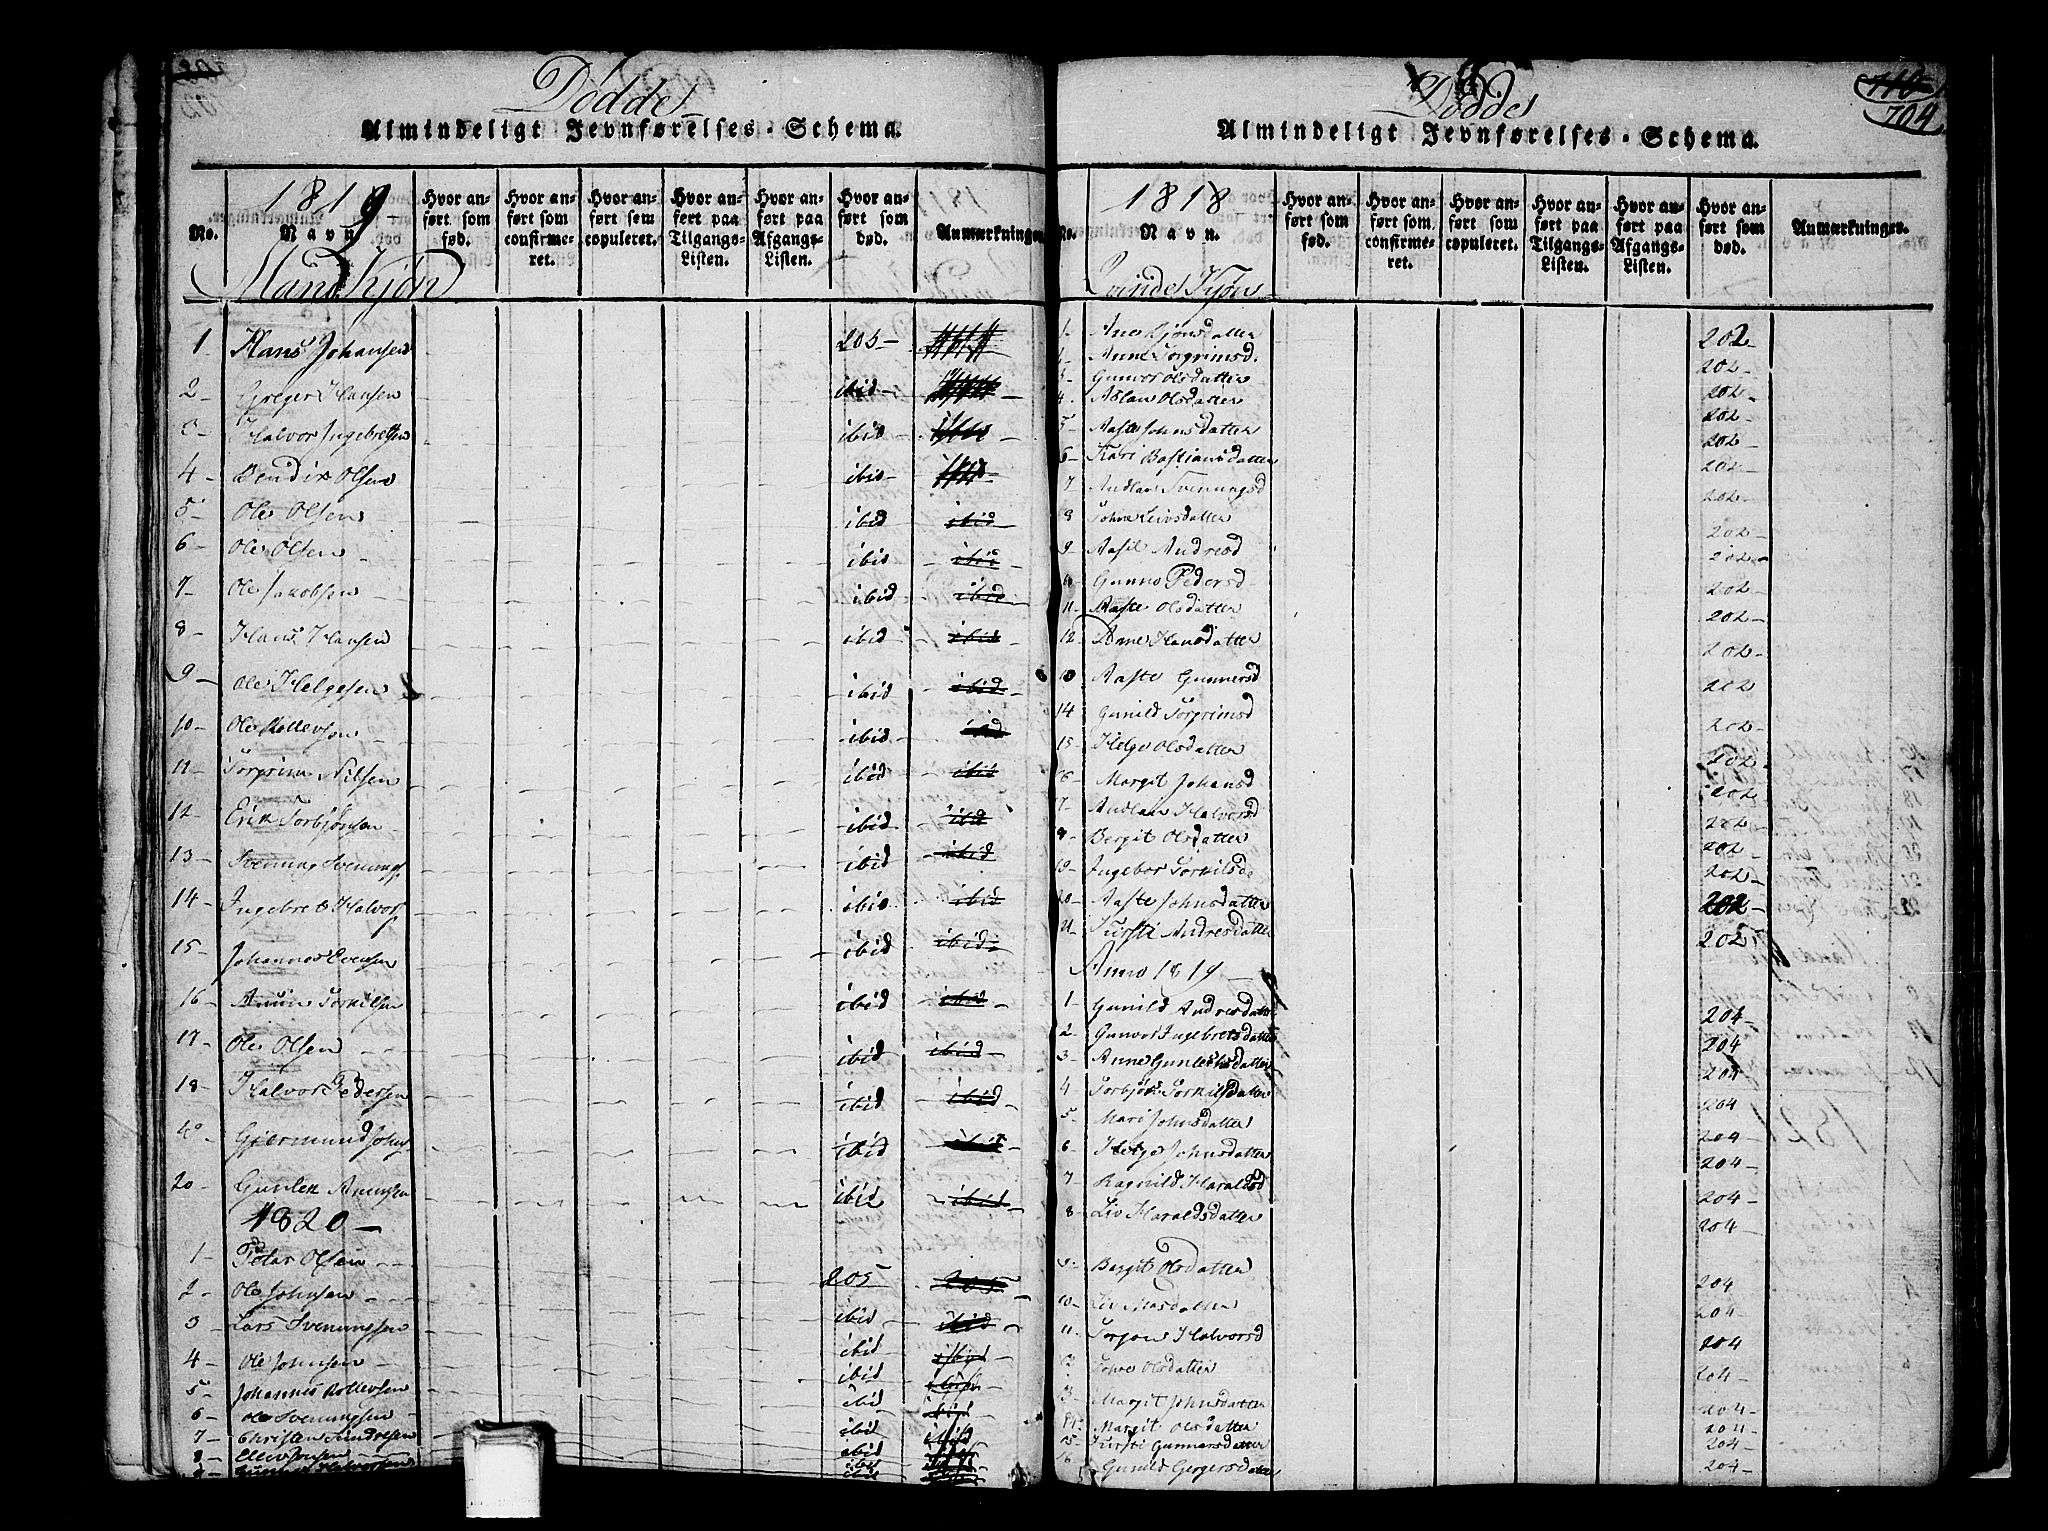 Dödde
Almindeligt Jevnførelses-Schema.
No.
1819
Navn
Hvor anført som fød.
Hvor anført som confirmeret.
Hvor anført som copuleret.
Hvor anført paa Tilgangs-Listen.
Hvor anført paa Afgangs-Listen.
Hvor anført som død.
Anmærkninger
Mand Kjøn
1 Hans Johansen 205
2 Greger Hansen ibid
3 Halvor Ingebretsen ibid
4 Bendix Olsen ibid
5 Ole Olsen ibid ibid
6 Ole Olsen ibid ibid
7 Ole Jacobsen ibid ibid
8 Hans Hansen ibid ibid
9 Ole Helgesen ibid ibid
10 Ole Rollevsen ibid ibid
11 Torgrim Nilsen ibid ibid
12 Erik Torbjönsen ibid ibid
13 Svenung Svenungs. ibid ibid
14 Ingebret Halvors. ibid ibid
15 Johannes Evensen ibid ibid
16 Anun Torkilsen ibid ibid
17 Ole Olsen ibid ibid
18 Halvor Pedersen ibid ibid
Gjermund Johns. ibid ibid
20 Gunlek Anunsen ibid ibid
1820
1 Peter Olsen 205 205
2 Ole Johnsen ibid ibid
3 Lars Svenungsen ibid
4 Ole Johnsen ibid
5 Johannes Rollevsen ibid
6 Ole Svenungsen ibid
7 Christen Sundresen ibid
8 ibid
Halvorsen ibid
Dödde
704
Almindeligt Jevnførelses-Schema.
No.
1818
Navn.
Hvor anført som fød.
Hvor anført som confirmeret.
Hvor anført som copuleret.
Hvor anført paa Tilgangs-Listen.
Hvor anført paa Afgangs-Listen.
Hvor anført som død.
Anmærkninger.
Qvinde Kjøn
1 Ane Kjönsdatter 202
2 Anne Torgrimsd. 202
3 Gunvor Olsdatter 202
4 Aslau Olsdatter 202
5 Aaste Johnsdatter 202
6 Kari Bastiansdatter 202
7 Audlau Svenungsd 202
8 Tohne Leivsdatter 202
9 Aasil Andresd 202
10 Gunno Pedersd 202
11 Aaste Olsdatter 202
12 Anne Hansdatter 202
13 Aaste Gunnersd 202
14 Gunild Torgrimsd 202
15 Helge Olsdatter 202
16 Margit Johansd 202
7 Audlau Halvorsd 202
8 Bergit Olsdatter 202
19 Ingebor Torkilsd. 202
20 Aaste Johnsdatter 202
21 Kirsti Andresdatter 202
Anno 1819
1 Gunild Andresdatter 204
2 Gunvor Ingebretsdatter 204
3 Anne Gunleksdatter 204
4 Torbjör Torkilsdatter 204
5 Mari Johnsdatter 204
6 Helge Johnsdatter 204
7 Ragnild Haraldsd 204
8 Liv Haraldsdatter 204
9 Bergit Olsdatter 204
10 Liv datter 204
11 Torjon Halvorsd 204
12 Tone Olsdatter 204
3 Margit Johnsdatter 204
14 Margit Olsdatter 204
15 Kirsti Gunnarsdatter 204
16 Gunild Gergersdatter 204